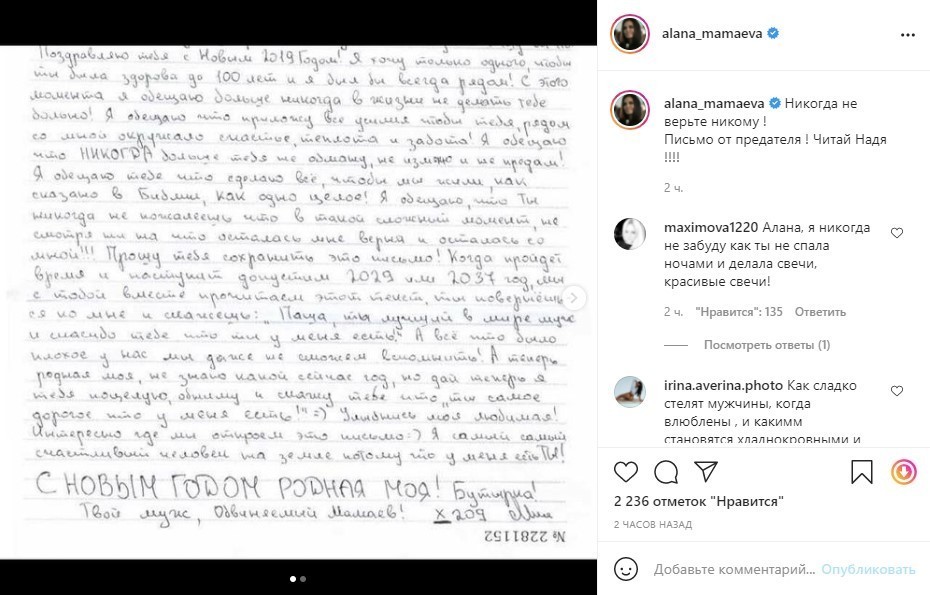 Поздравляю тебя с Новым 2019 Годом! Я хочу только одного, чтобы
ты была здорова до 100 лет и я был бы всегда рядом! С этого
момента я обещаю больше никогда в жизни не делать тебе
больно! Я обещаю что приложу все усилия чтобы тебя, рядом
со мной окружало счастье, теплота и забота! Я обещаю
что НИКОГДА больше тебя не обману, не изменю и не предам!
Я обещаю тебе что сделаю всё, чтобы мы жили, как
сказано в Библии, как одно целое! Я обещаю, что Ты
никогда не пожалеешь что в такой сложный момент, не
смотря ни на что осталась мне верна и осталась со
мной!!! Прошу тебя сохранить это письмо! Когда пройдет
время и наступит допустим 2029 или 2037 год, мы
с тобой вместе прочитаем этот текст, ты повернёшь
ся ко мне и скажешь: "Паша, ты лучший в мире муж
и спасибо тебе что ты у меня есть!" А всё что было
плохое у нас мы даже не сможем вспомнить! А теперь
родная моя, не знаю какой сейчас год, но дай теперь я
тебя поцелую, обниму и скажу тебе что "ты самое
дорогое что у меня есть!" =) Улыбнись моя любимая!
Интересно где мы откроем это письмо =) Я самый самый
счастливый человек на земле потому что у меня есть ТЫ!
С НОВЫМ ГОДОМ РОДНАЯ МОЯ! Бутырка!
Твой муж, Обвиняемый Мамаев! х 209
№ 2281152
alana_mamaeva
alana_mamaeva Никогда не
верьте никому !
Письмо от предателя ! Читай Надя
!!!!
2 ч.
maximova1220 Алана, я никогда
не забуду как ты не спала
ночами и делала свечи,
красивые свечи!
2 ч. "Нравится": 135 Ответить
Посмотреть ответы (1)
irina.averina.photo Как сладко
стелят мужчины, когда
влюблены , и какимм
становятся хладнокровными и
2 236 отметок "Нравится"
2 ЧАСОВ НАЗАД
Добавьте комментарий... Опубликовать